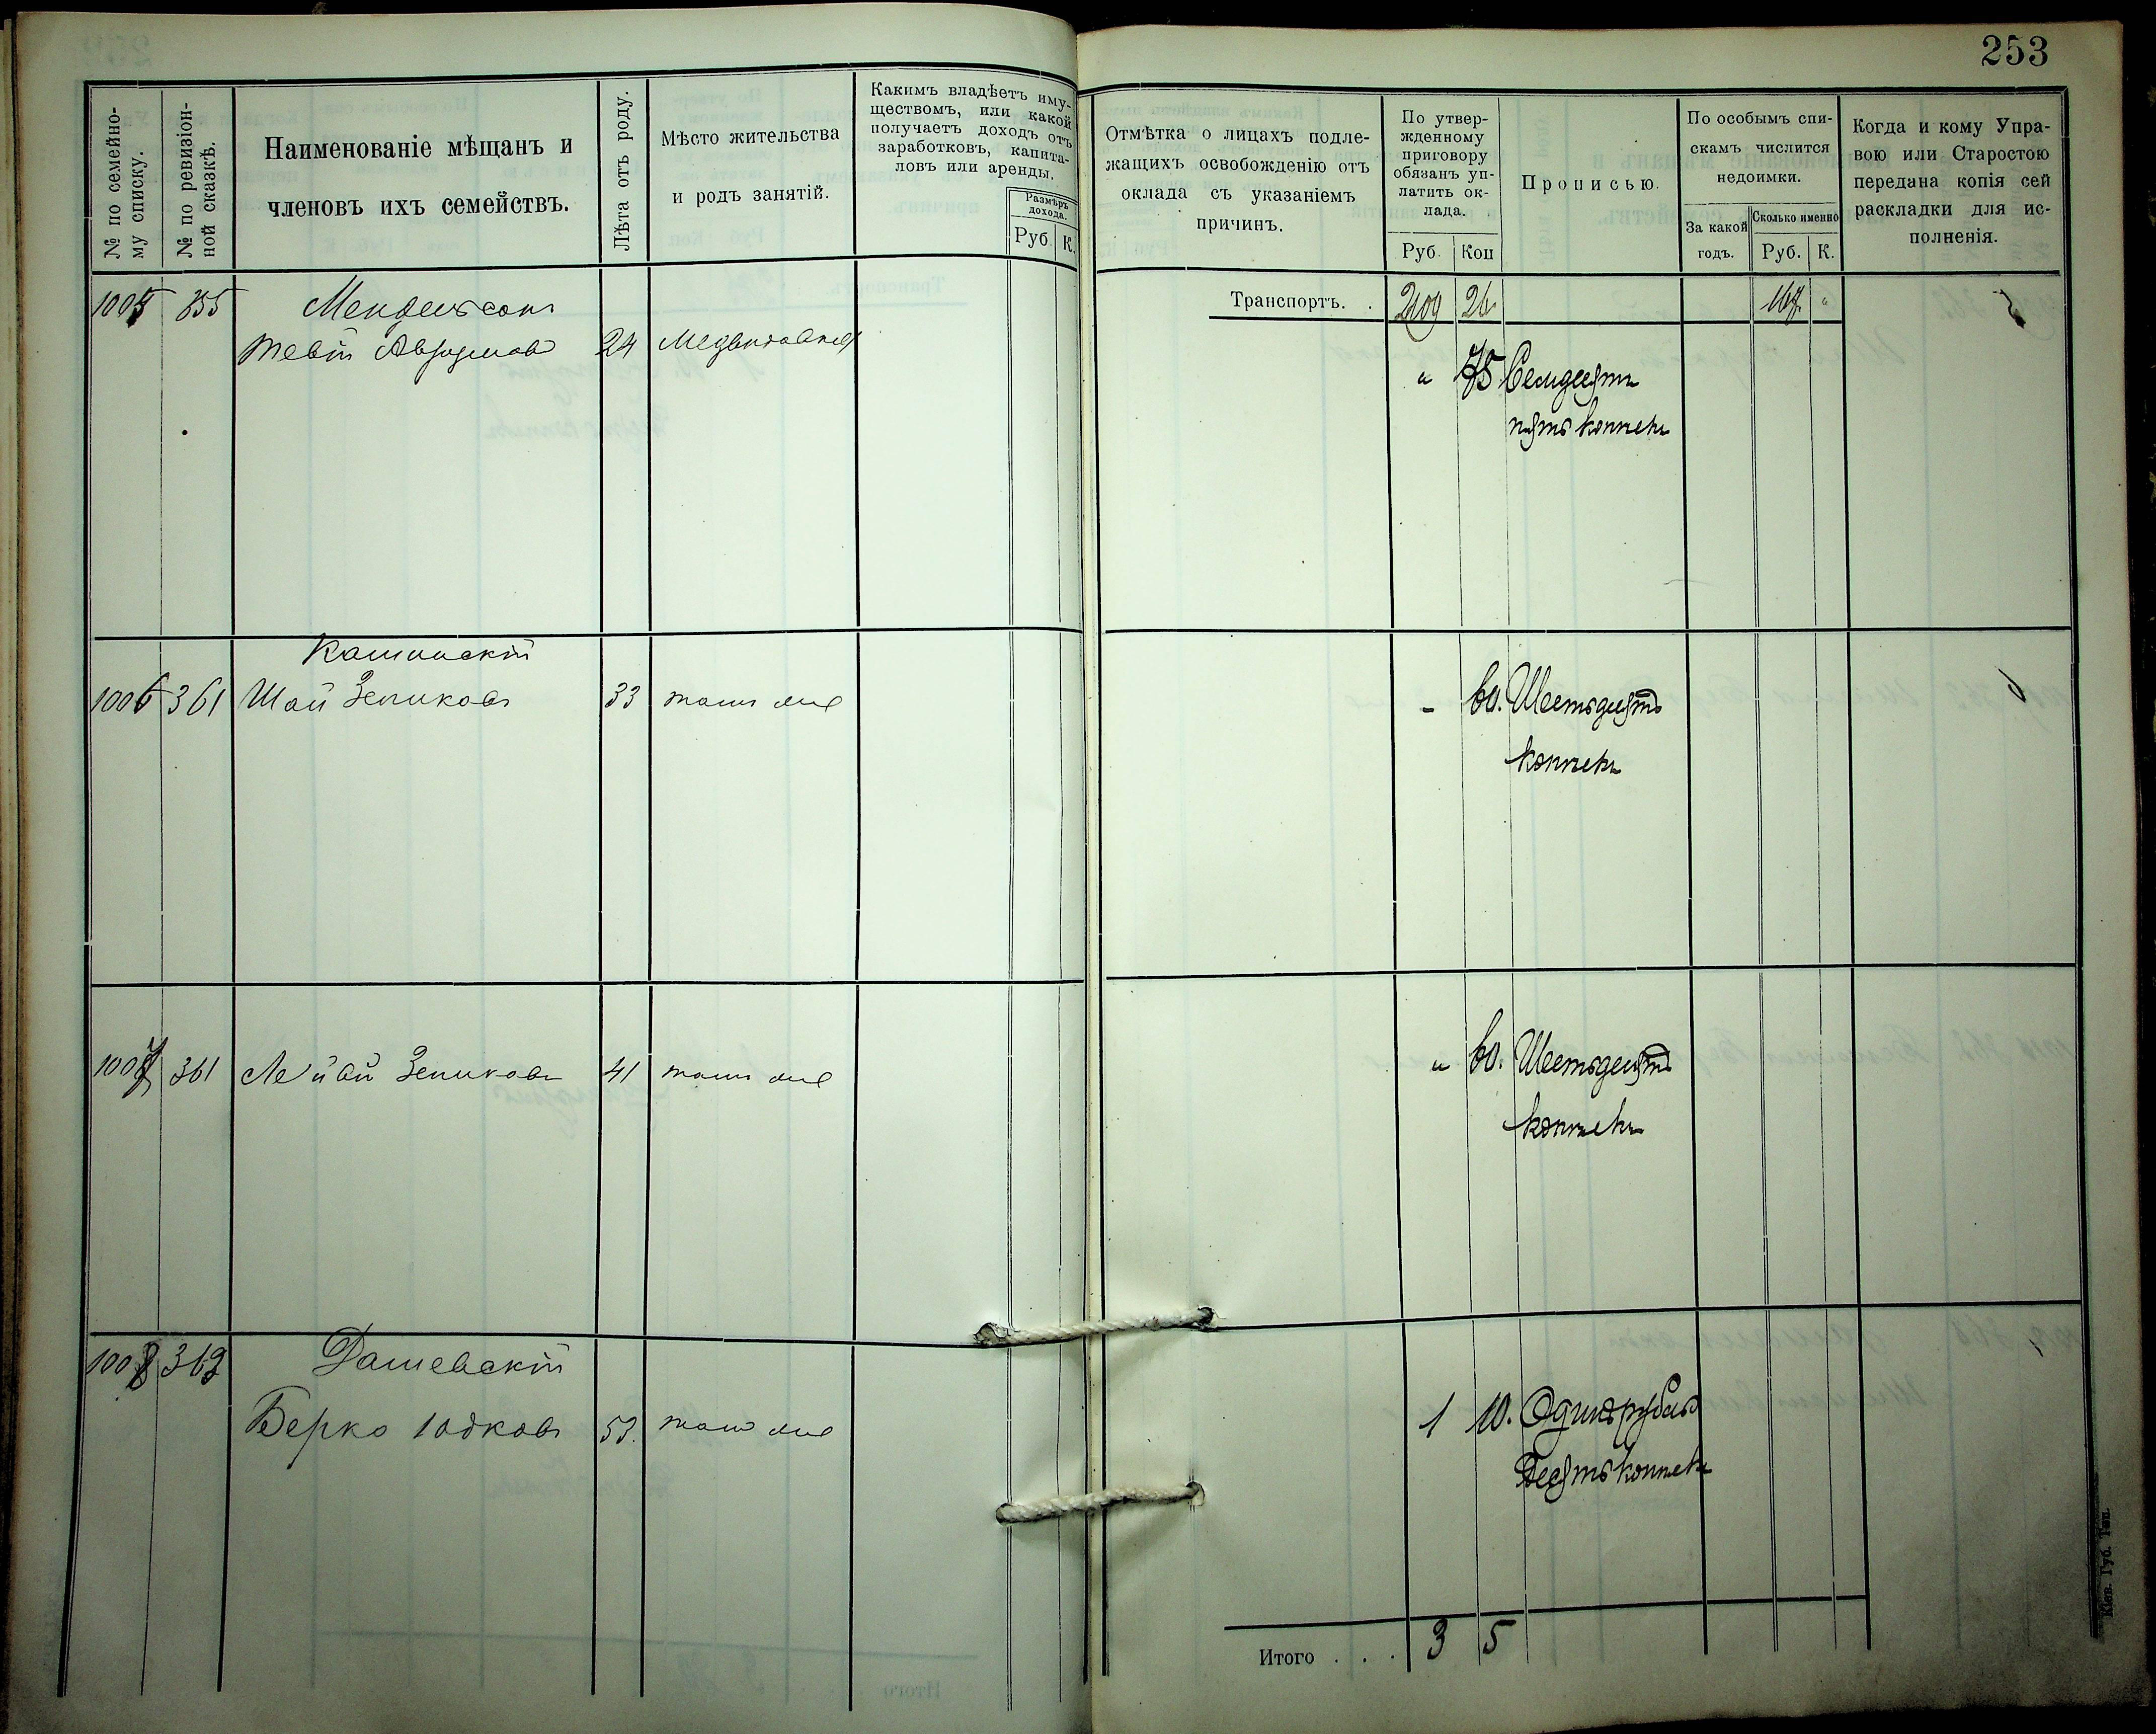 253
№ по семейно-
му списку.
№ по ревизіон-
ной сказкѣ.
Наименованіе мѣщанъ и
членовъ ихъ семействъ.
Лѣта отъ роду.
Мѣсто жительства
и родъ занятій.
Какимъ владѣетъ иму-
ществомъ, или какой
получаетъ доходъ отъ
заработковъ, капита-
ловъ или аренды.
Размѣръ
дохода.
Руб. К.
Отмѣтка о лицахъ подле-
жащихъ освобожденію отъ
оклада съ указаніемъ
причинъ.
По утвер-
жденному
приговору
обязанъ уп-
латить ок-
лада.
Руб. Коп
Прописью.
По особымъ спи-
скамъ числится
недоимки.
За какой
годъ.
Сколько именно
Руб. К.
Когда и кому Упра-
вою или Старостою
передана копія сей
раскладки для ис-
полненія.
Транспортъ. . 2109 26 167 "
1005 355 Мендельсонъ
Тевій Аврумовъ 24 Медвѣдовка " 75 Семдесятъ
пять копѣекъ
Кашинскій
1006 361 Шай Зейликовъ 33 тамъ же - 60. Шестьдесятъ
копѣекъ
1007 361 Лейви Зейликовъ 41 тамъ же " 60. Шестьдесятъ
копѣекъ
1008 362 Дашевскій
Берко Іодковъ 53. тамъ же 1 10. Одинъ рубль
Десять копѣекъ
Итого . . . 3 5
Кіев. Губ. Тип.